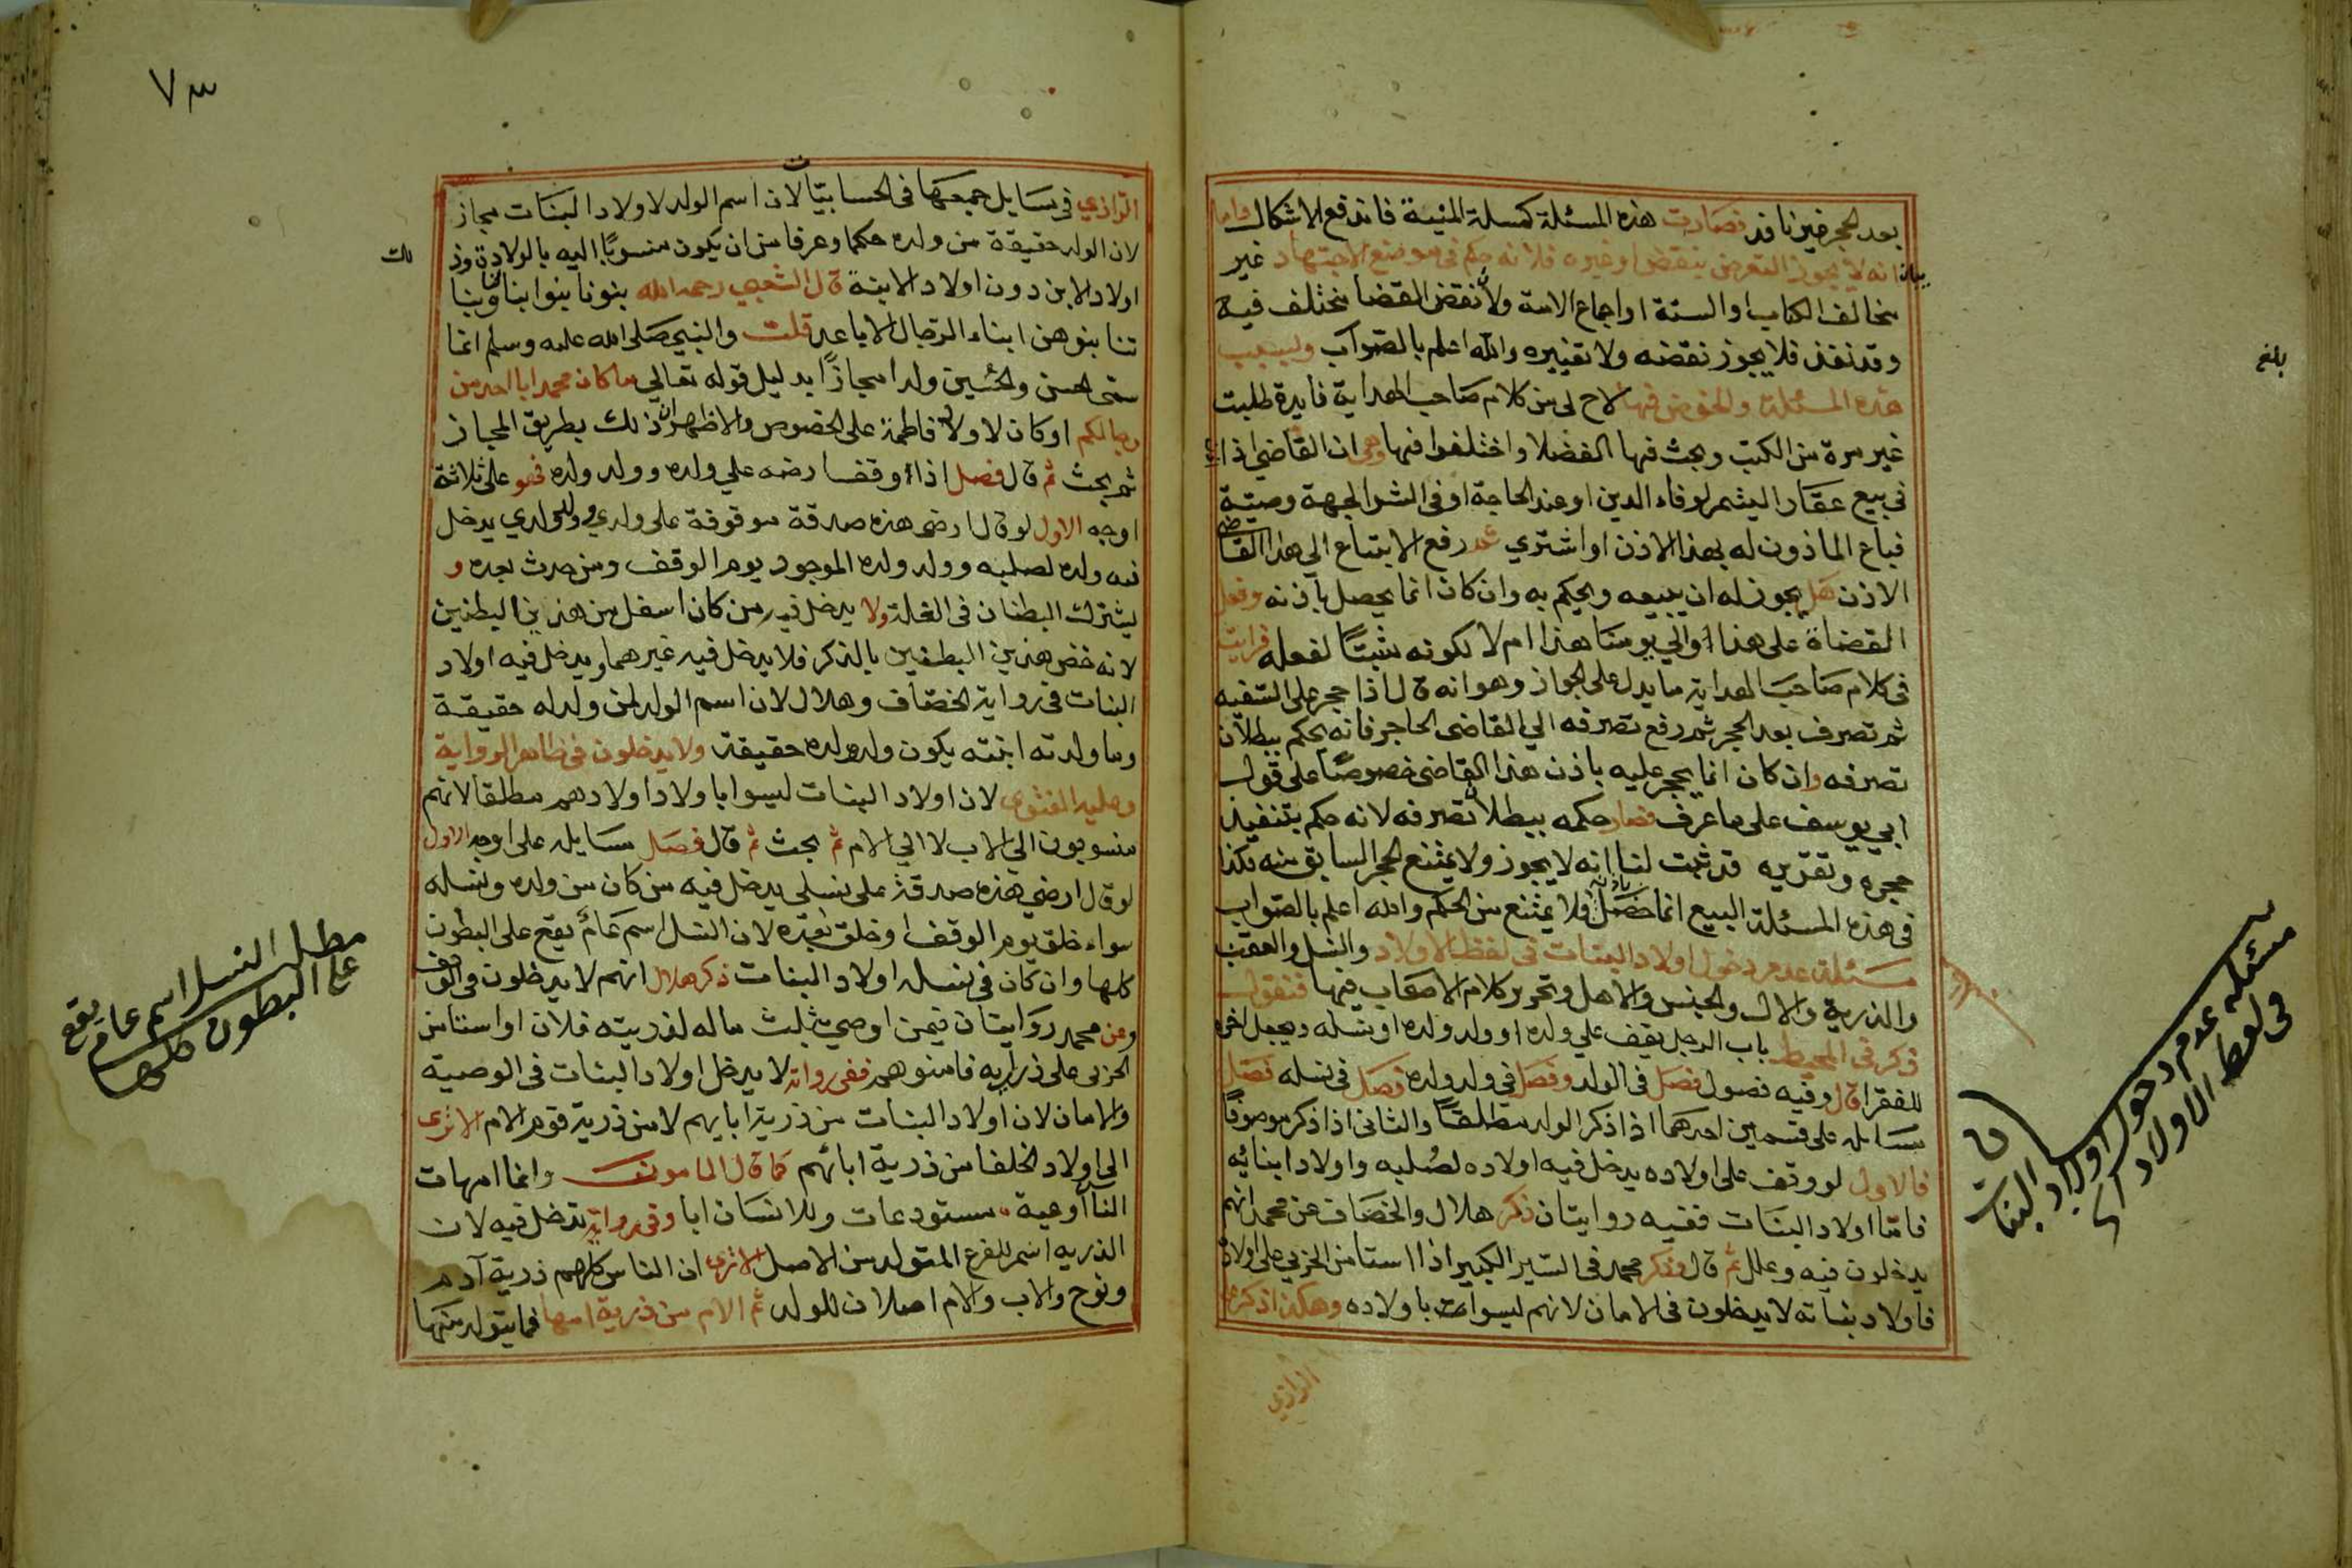 بعد الحجر خيرنافذ فصارت هذه المسئلة كمسلة المنية فاندفع الاشكال واما
بيان انه لا يجوز التعرض بنقض او غيره فلانه حكم في موضع الاجتهاد غير
مخالف الكتاب او السنة او اجماع الامة ولان نقض القضا مختلف فيه
وقد نفذ فلا يجوز نقضه ولا تغييره والله اعلم بالصواب وبسبب
هذه المسئلة والخوض فيها لاح لي من كلام صاحب الهداية فايدة طلبت
غير مرة من الكتب وبحث فيها الفضلا واختلفوا فيها وهي ان القاضي اذا
في بيع عقار اليتيم لوفاء الدين او عند الحاجة او في الشرا لجهة وصية
فباع الماذون له بهذا الاذن او اشتري ثم رفع الابتياع الي هذا القاضي
الاذن هل يجوز له ان يبيعه ويحكم به وان كان انما يحصل باذنه وفعل
القضاة على هذا اوالي يومنا هذا ام لا لكونه مثبتا لفعله فرايت
في كلام صاحب الهداية ما يدل على الجواز وهو انه قال اذا حجر على السفيه
ثم تصرف بعد الحجر ثم رفع تصرفه الي القاضي الحاجر فانه يحكم ببطلان
تصرفه وان كان انما يحجر عليه باذن هذا القاضي خصوصا على قول
ابي يوسف على ما عرف فصار حكمه ببطلان تصرفه لانه حكم بتنفيذ
حجره وتقريره قد ثبت لنا انه لا يجوز ولا يمتنع الحجر السابق منه فكذا
في هذه المسئلة البيع انما حصل باذنه فلا يمتنع من الحكم والله اعلم بالصواب
مسئلة عدم دخول اولاد البنات في لفظ الاولاد والنسل والعقب
والذرية والال والجنس والاهل وتحرير كلام الاصحاب فيها فنقول
ذكر في المحيط باب الرجل يقف علي ولده او ولد ولده او نسله ويجعل اخره
للفقرا قال وفيه فصول فصل في الولد وفصل في ولد ولده فصل في نسله فصل
مسايله على قسمين احدهما اذا ذكر الولد مطلقا والثاني اذا ذكر موصوفا
فالاول لو وقف على اولاده يدخل فيه اولاده لصلبه واولاد ابنائه
فاما اولاد البنات ففيه روايتان ذكر هلال والخصاف عن محمد انهم
يدخلون فيه وعلل ثم قال وذكر محمد في السير الكبير اذا استامن الحربي على اولاده
فاولاد بناته لا يدخلون في الامان لانهم ليسوا باولاده وهكذا ذكره
الرازي
بلغ
مسئله عدم دخول اولاد البنات
في لفظ الاولاد
٧٣
الرازي في مسايل جمعها في الحسابيات لان اسم الولد لاولاد البنات مجاز
لان الولد حقيقة من ولده حكما وعرفا من ان يكون منسوبا اليه بالولادة وذلك
اولاد الابن دون اولاد الابنة قال الشعبي رحمه الله بنونا بنوا ابنائنا وبنا
تنا بنوهن ابناء الرجال الاباعد قلت والنبي صلى الله عليه وسلم انما
سمى الحسن والحسين ولدا مجازا بدليل قوله تعالي ما كان محمد ابا احد من
رجالكم او كان لاولاد فاطمة على الخصوص والاظهر ان ذلك بطريق المجاز
ثم بحث ثم قال فصل اذا وقف ارضه علي ولده وولد ولده فهو على ثلاثة
اوجه الاول لو قال ارضى هذه صدقة موقوفة على ولدي وولد ولدي يدخل
فيه ولده لصلبه وولد ولده الموجود يوم الوقف ومن حدث بعده و
يشترك البطنان في الغلة ولا يدخل فيه من كان اسفل من هذين البطنين
لانه خص هذين البطنين بالذكر فلا يدخل فيه غيرهما ويدخل فيه اولاد
البنات في رواية الخصاف وهلال لان اسم الولد لمن ولد له حقيقة
وما ولدته ابنته يكون ولد ولده حقيقة ولا يدخلون في ظاهر الرواية
وعليه الفتوى لان اولاد البنات ليسوا باولاد اولادهم مطلقا لانهم
منسوبون الي الاب لا الي الام ثم بحث ثم قال فصل مسايله على اوجه الاول
لو قال ارضي هذه صدقة على نسلي يدخل فيه من كان من ولده ونسله
سواء خلق يوم الوقف او خلق بعده لان النسل اسم عام يقع على البطون
كلها وان كان في نسله اولاد البنات ذكر هلال انهم لا يدخلون في الوقف
وعن محمد روايتان فيمن اوصي بثلث ماله لذريته فلان او استامن
الحربي على ذراريه فامنوهم ففي رواية لا يدخل اولاد البنات في الوصية
والامان لان اولاد البنات من ذرية ابايهم لا من ذرية قوم الام الا ترى
الي اولاد الخلفا من ذرية ابائهم كما قال المامون وانما امهات
الناس اوعية مستودعات وللانسان ابا وفي رواية يدخل فيه لان
الذريه اسم للفرع المتولد من الاصل الا ترى ان الناس كلهم ذرية آدم
ونوح والاب والام اصلان للولد ثم الام من ذرية امها فما يتولد منها
مطلب النسل اسم عام يقع
على البطون كلها